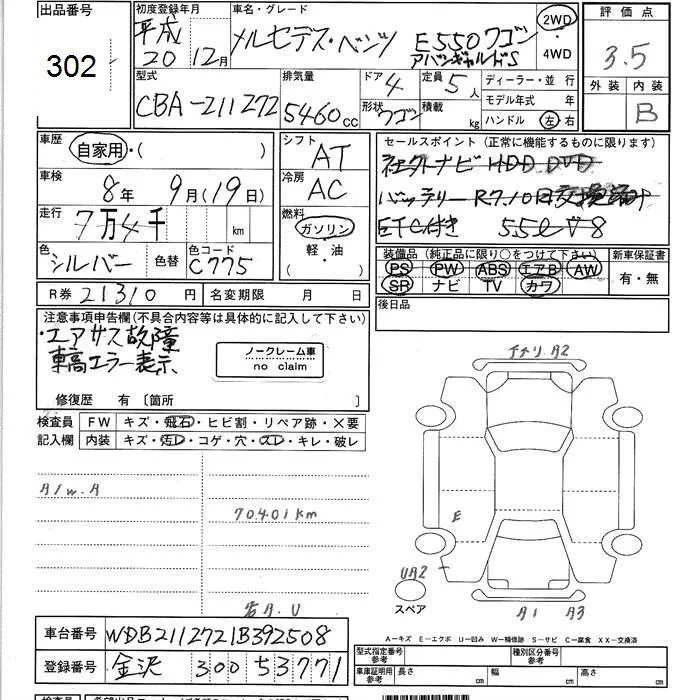 出品番号
302
初度登録年月
平成
20 12月
車名・グレード
メルセデス・ベンツ E550ワゴン
アバンギャルドS
2WD
・
4WD
評価点
3.5
外装 内装
B
型式
CBA-211272
排気量
5460cc
ドア
4
形状 ワゴン
定員
5人
積載
kg
ディーラー・並行
モデル年式 年
ハンドル 左・右
車歴
自家用・( )
車検
8年 9月(19日)
走行
7万4千 km
色
シルバー
色替
色コード
C775
シフト
AT
冷房
AC
燃料
ガソリン
・
(軽・油)
セールスポイント(正常に機能するものに限ります)
社外ナビ HDD DVD
バッテリー R7.10
ETC付き 5.5ℓ V8
装備品(純正品に限り○をつけて下さい)
PS PW ABS エアB AW
SR ナビ TV カワ
新車保証書
有・無
R券 21310円
名変期限 月 日
後日品
注意事項申告欄(不具合内容等は具体的に記入して下さい)
・エアサス故障
車高エラー表示
ノークレーム車
no claim
修復歴 有〔箇所 〕
検査員
記入欄
FW キズ・飛石・ヒビ割・リペア跡・×要
内装 キズ・汚レ・コゲ・穴・スレ・キレ・破レ
A/w.A
70401km
A.U
A2
E
UA2
スペア
A1 A3
A-キズ E-エクボ U-凹み W-補修跡 S-サビ C-腐食 XX-交換済
車台番号 WDB2112721B392508
登録番号 金沢 300 53771
型式指定番号
参考
種別区分番号
参考
車庫証明用
参考
長さ cm 幅 cm 高さ cm